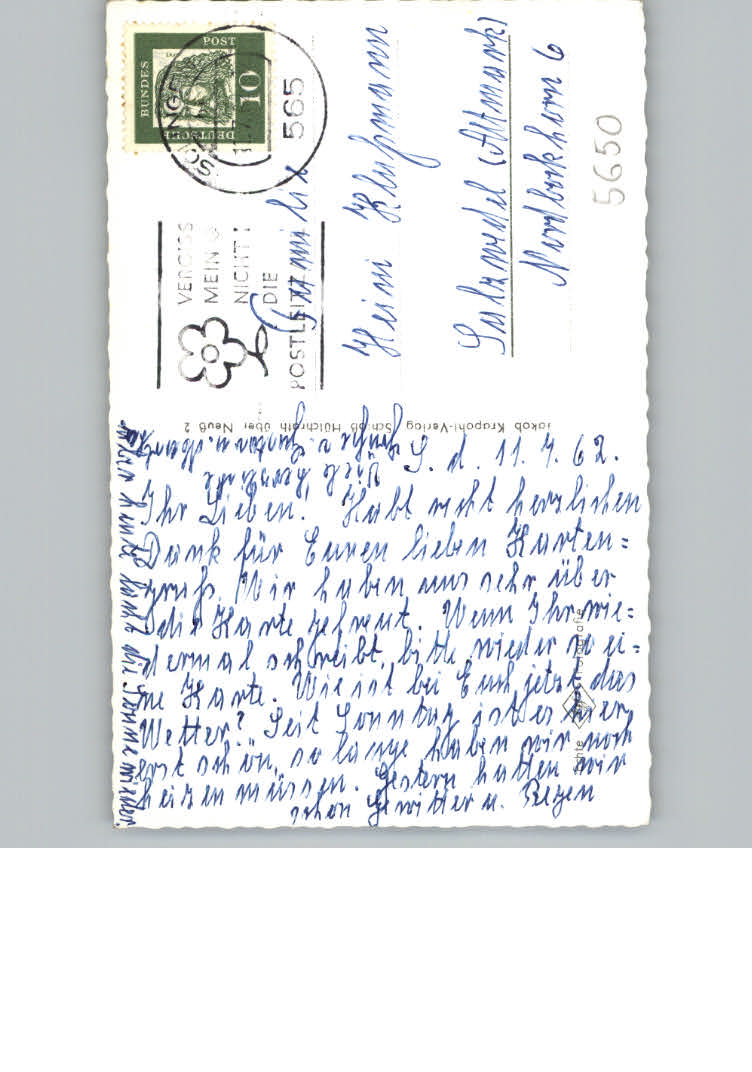 DEUTSCHE
BUNDES
POST
10
565
VERGISS
MEIN
NICHT!
DIE
POSTLEITZ
Familie
Heini
Salzwedel (Altmark)
6
5650
Jakob Krapohl-Verlag Schloß Hülchrath über Neuß 2
Echte Fotografie
S. d. 11. 7. 62.
Ihr Lieben! Habt recht herzlichen
Dank für Euren lieben Karten=
gruß. Wir haben uns sehr über
die Karte gefreut. Wenn Ihr wie=
dermal schreibt, bitte wieder so ei=
ne Karte. Wie ist bei Euch jetzt das
Wetter? Seit Sonntag ist es hier
erst schön, so lange haben wir noch
heizen müssen. Gestern hatten wir
schon Gewitter u. Regen
aber heute lacht die Sonne wieder.
Viele herzliche